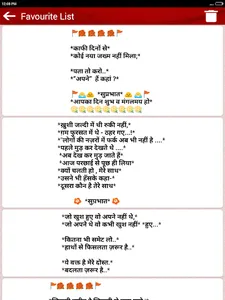 12:08 PM
Favourite List
*काफी दिनों से*
*कोई नया जख्म नहीं मिला;*
*पता तो करो..*
*"अपने" हैं कहां ?*
*सुप्रभात*
*आपका दिन शुभ व मंगलमय हो*
*खुशी जल्दी में थी रुकी नहीं,*
*ग़म फुरसत में थे - ठहर गए...!*
*लोगों की नज़रों में फर्क अब भी नहीं है ....*
*पहले मुड़ कर देखते थे ....*
*अब देख कर मुड़ जाते हैं*
*आज परछाई से पूछ ही लिया*
*क्यों चलती हो , मेरे साथ*
*उसने भी हँसके कहा-*
*दूसरा कौन है तेरे साथ*
*सुप्रभात*
*जो खुश हुए वो अपने नहीं थे,*
*जो अपने थे वो कभी खुश नहीं* *हुए...*
*कितना भी समेट लो..*
*हाथों से फिसलता ज़रूर है..*
*ये वक्त है मेरे दोस्त.*
*बदलता ज़रूर है..*